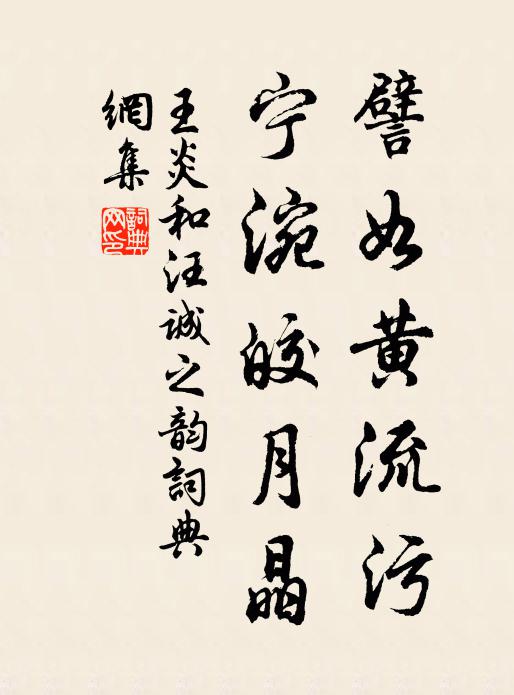 譬如黄流污
宁涴皎月晶
王炎和汪诚之韵詞典
網集
詞典网印